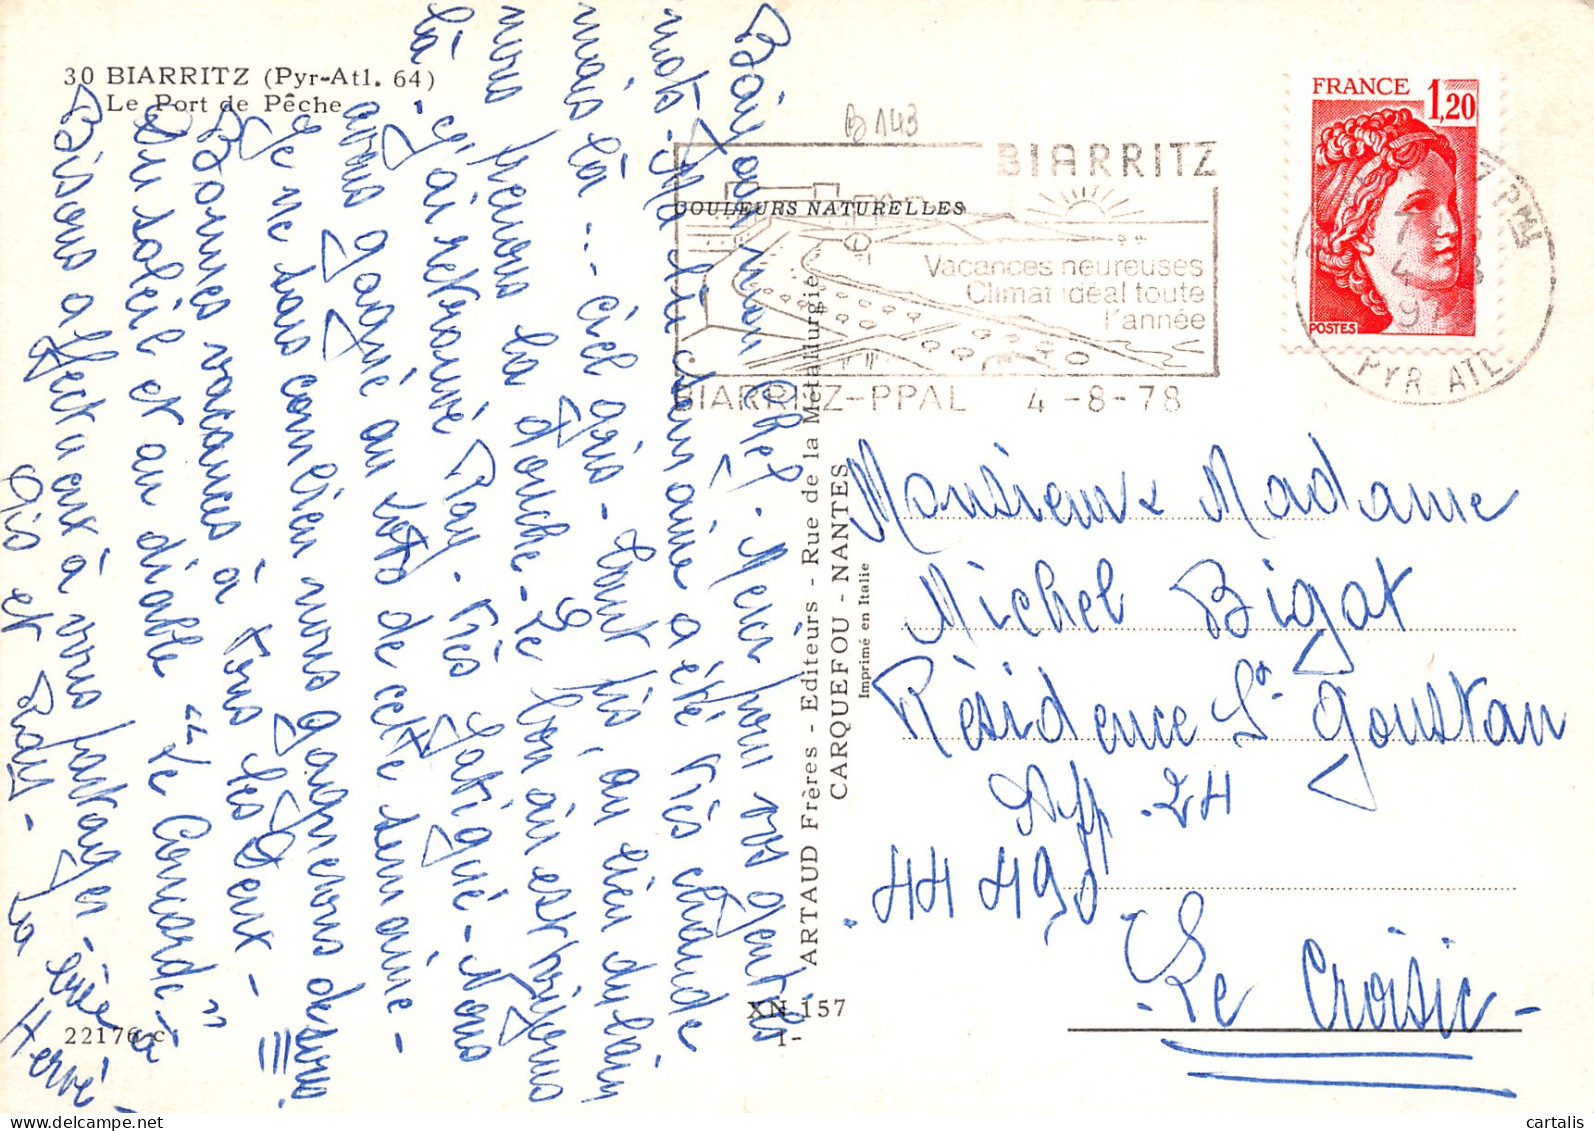 30 BIARRITZ (Pyr-Atl. 64)
Le Port de Pêche
B 143
FRANCE 1,20
POSTES
BIARRITZ
COULEURS NATURELLES
Vacances heureuses
Climat idéal toute
l'année
BIARRITZ-PPAL 4-8-78
PYR. ATL.
Bonjour mon Chef. Merci pour vos gentils
mots. La dernière semaine a été très chaude
mais là ... ciel gris - tant pis, au lieu du bain
nous prenons la douche. Le bon air est toujours
là - j'ai retrouvé Ray. très fatigué - Nous
avons gagné au loto de cette semaine -
Je ne sais combien nous gagnerons
Bonnes vacances à tous les deux -
Du soleil et au diable "Le Conard"
Bisous affectueux à vous partager -
Gis et Ray -
Hervé -
Monsieur & Madame
Michel Bigot
Résidence St Goustan
App. 24
44 490
- Le Croisic -
ARTAUD Frères - Editeurs - Rue de la Métallurgie
CARQUEFOU - NANTES
Imprimé en Italie
XN 157
1-
22176 c